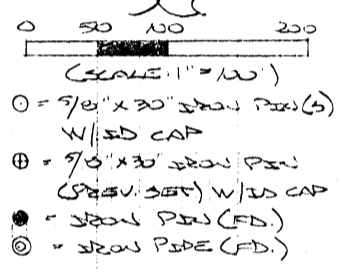 0 50 100 200
(SCALE: 1" = 100')
= 5/8" X 30" IRON PIN (S)
W/ID CAP
= 5/8" X 30" IRON PIN
(PREV. SET) W/ID CAP
= IRON PIN (FD.)
= IRON PIPE (FD.)